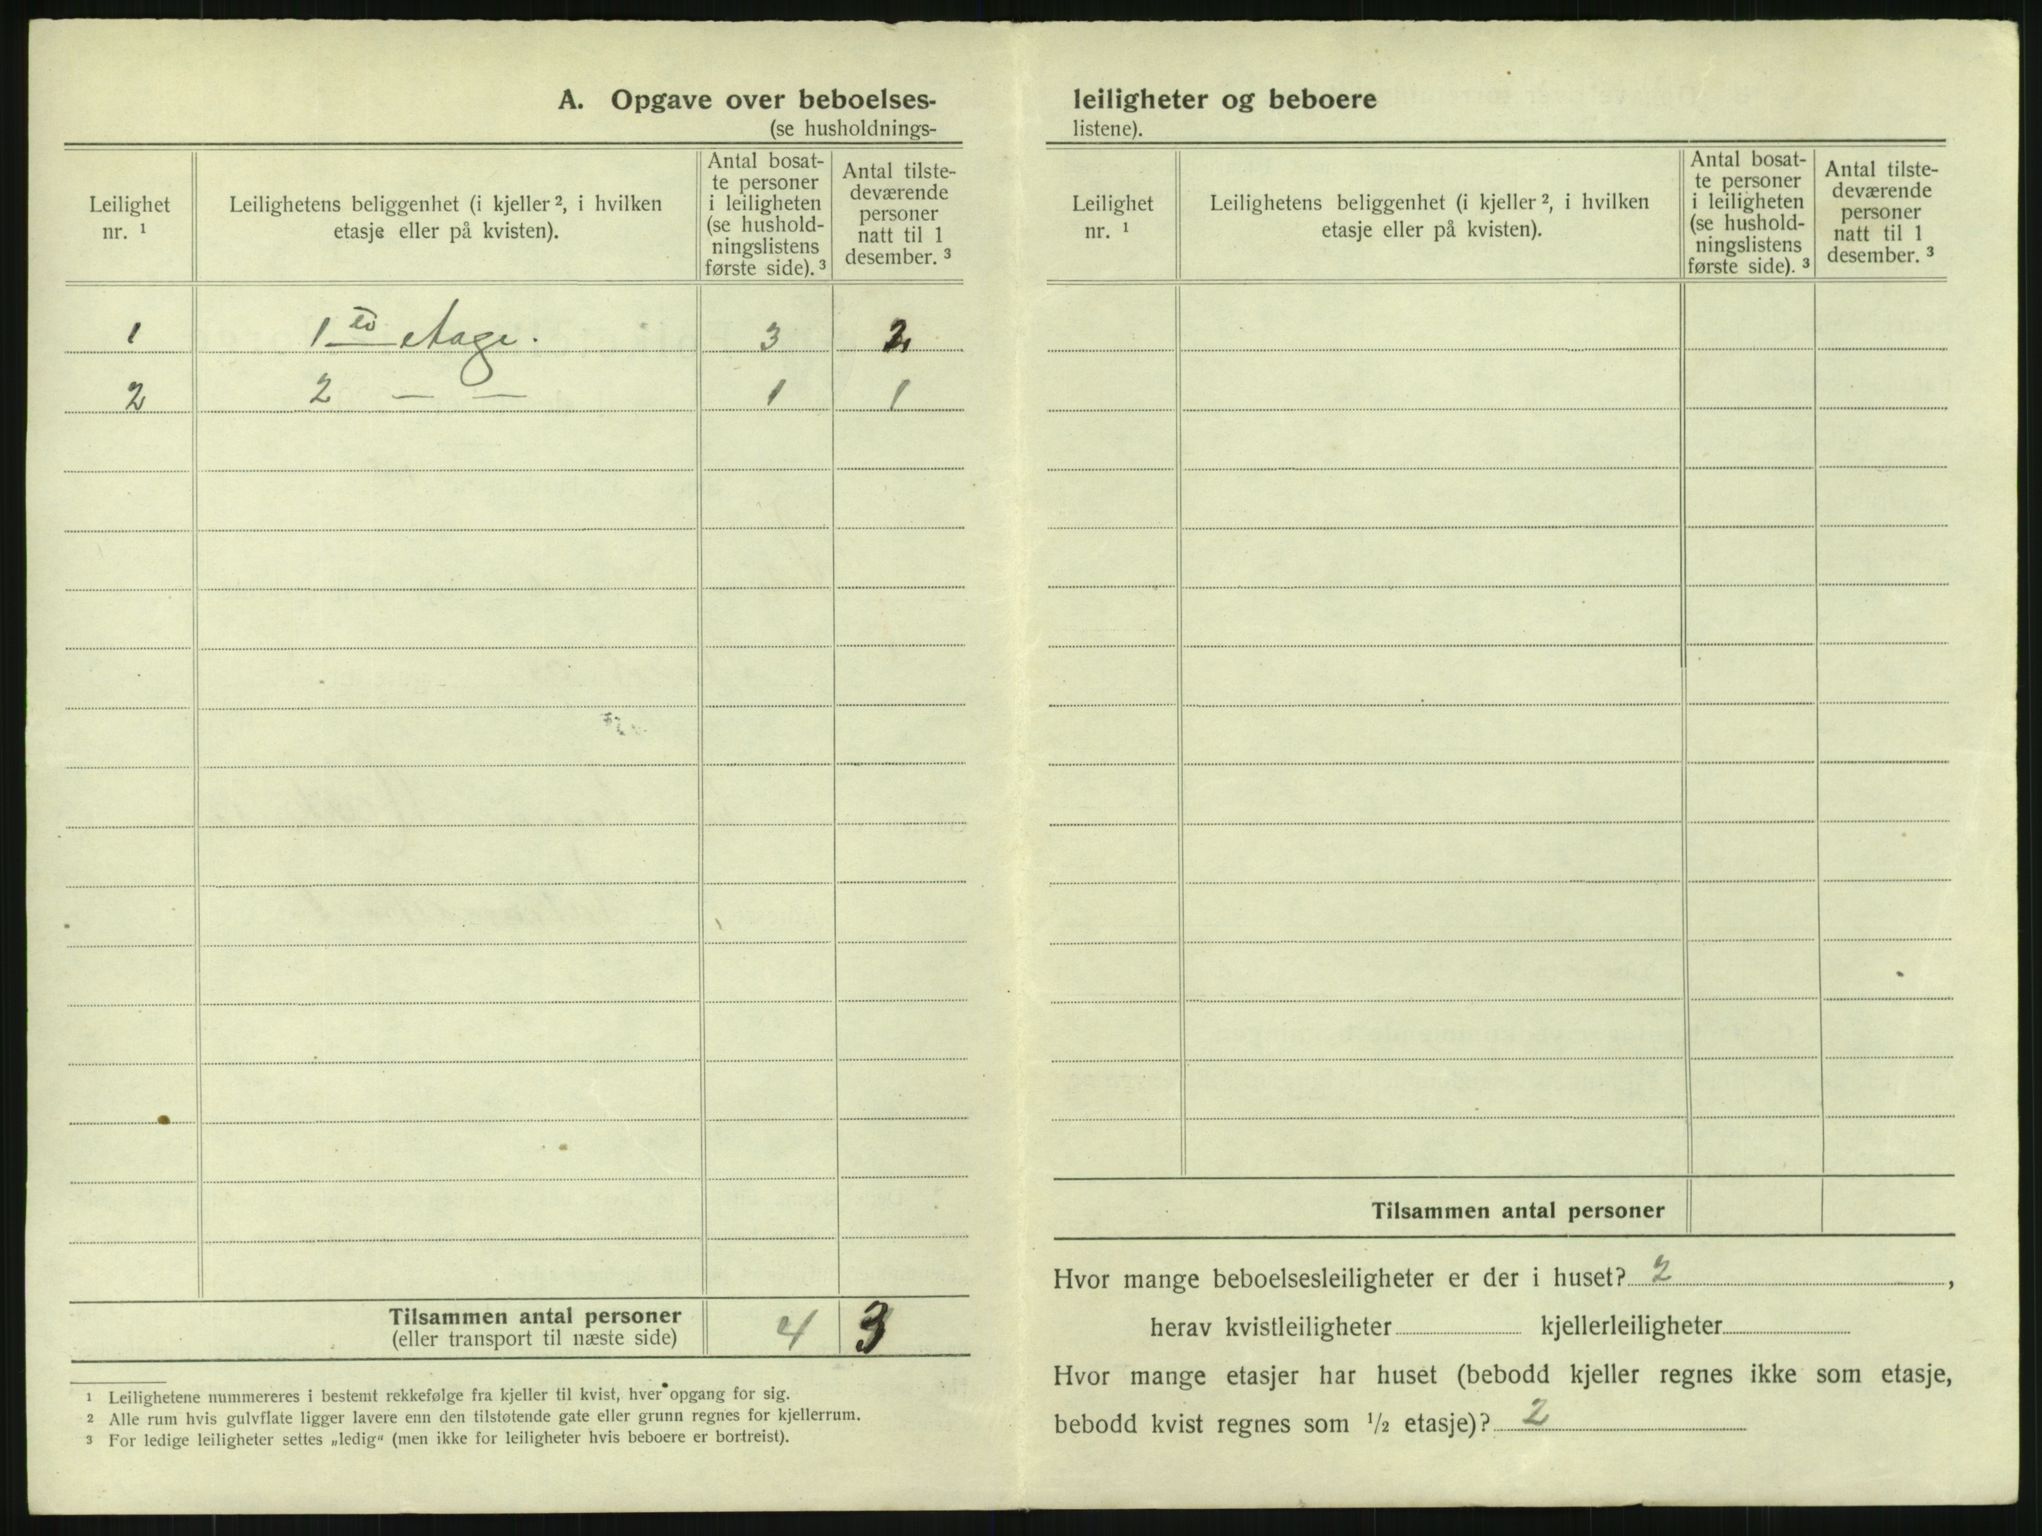 A. Opgave over beboelses-
(se husholdnings-
Leilighet
nr. ¹
Leilighetens beliggenhet (i kjeller ², i hvilken
etasje eller på kvisten).
Antal bosat-
te personer
i leiligheten
(se hushold-
ningslistens
første side). ³
Antal tilste-
deværende
personer
natt til 1
desember. ³
1 1 etage. 3 2
2 2 — — 1 1
Tilsammen antal personer 4 3
(eller transport til næste side)
¹ Leilighetene nummereres i bestemt rekkefølge fra kjeller til kvist, hver opgang for sig.
² Alle rum hvis gulvflate ligger lavere enn den tilstøtende gate eller grunn regnes for kjellerrum.
³ For ledige leiligheter settes „ledig“ (men ikke for leiligheter hvis beboere er bortreist).
leiligheter og beboere
listene).
Leilighet
nr. ¹
Leilighetens beliggenhet (i kjeller ², i hvilken
etasje eller på kvisten).
Antal bosat-
te personer
i leiligheten
(se hushold-
ningslistens
første side). ³
Antal tilste-
deværende
personer
natt til 1
desember. ³
Tilsammen antal personer
Hvor mange beboelsesleiligheter er der i huset? 2 ,
herav kvistleiligheter kjellerleiligheter
Hvor mange etasjer har huset (bebodd kjeller regnes ikke som etasje,
bebodd kvist regnes som ½ etasje)? 2